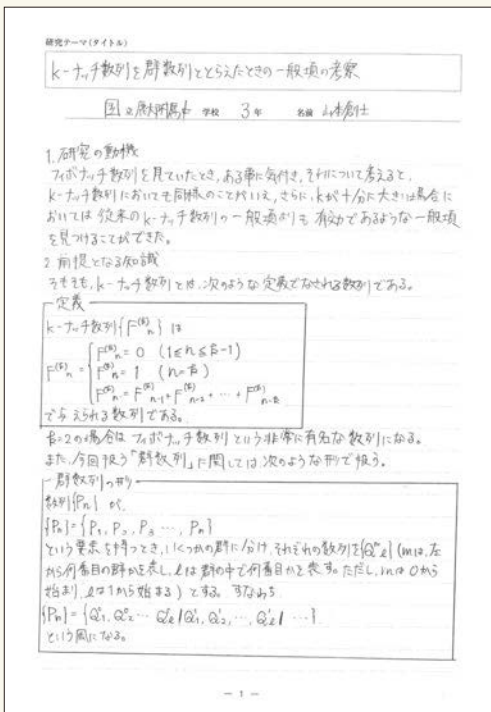 研究テーマ(タイトル)
k-ナッチ数列を群数列ととらえたときの一般項の考察
学校 3年 名前
1. 研究の動機
フィボナッチ数列を見ていたとき、ある事に気付き、それについて考えると、
k-ナッチ数列においても同様のことがいえ、さらに、kが十分に大きい場合に
おいては従来のk-ナッチ数列の一般項よりも有効であるような一般項
を見つけることができた。
2. 前提となる知識
そもそも、k-ナッチ数列とは、次のような定義でなされる数列である。
定義
k-ナッチ数列{F^(k)_n}は
F^(k)_n = 0 (1≤n≤k-1)
F^(k)_n = F^(k)_n = 1 (n=k)
F^(k)_n = F^(k)_n-1 + F^(k)_n-2 + … + F^(k)_n-k
で与えられる数列である。
k=2の場合はフィボナッチ数列という非常に有名な数列になる。
また、今回扱う"群数列"に関しては次のような形で扱う。
群数列の形
数列{Pn}が、
{Pn}={P1, P2, P3 …, Pn}
という要素を持つとき、いくつかの群に分け、それぞれの数列を{Q^m_l}(mは、左
から何番目の群かを表し、lは群の中で何番目かを表す。ただし、mは0から
始まり、lは1から始まる)とする。すなわち
{Pn}={Q^0_1, Q^0_2 … Q^0_l | Q^1_1, Q^1_2, …, Q^1_l | …}
という風になる。
- 1 -